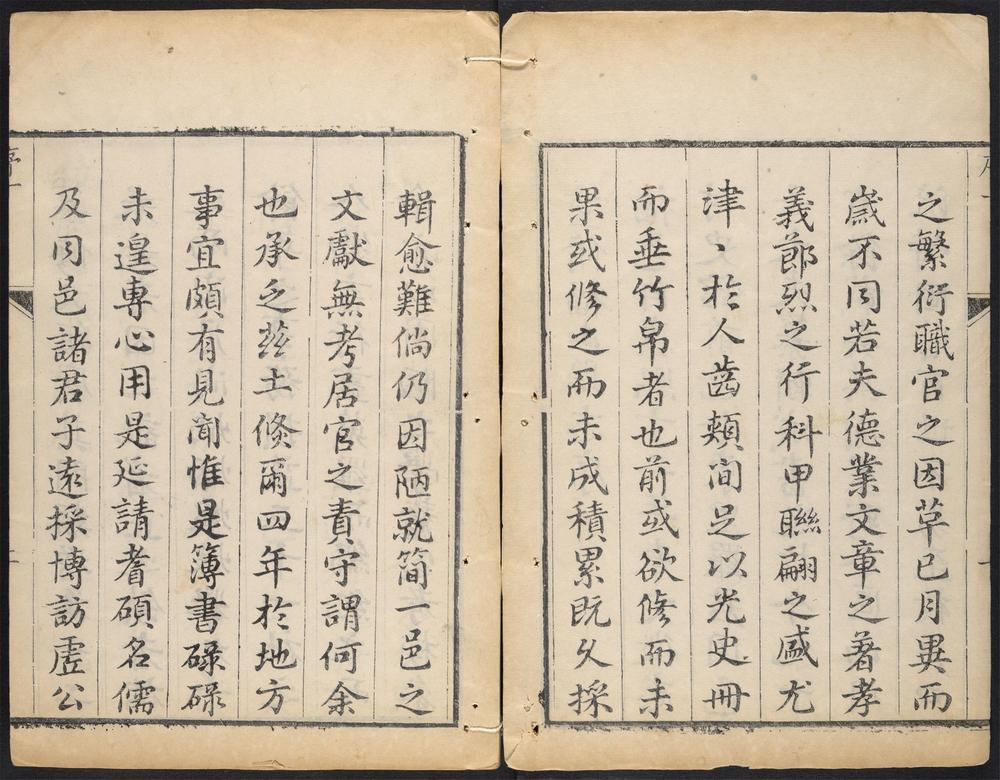 之繁衍職官之因革已月異而
歲不同若夫德業文章之著孝
義節烈之行科甲聯翩之盛尤
津、於人齒頰間足以光史冊
而垂竹帛者也前或欲修而未
果或修之而未成積累既久採
輯愈難倘仍因陋就簡一邑之
文獻無考居官之責守謂何余
也承乏茲土倐爾四年於地方
事宜頗有見聞惟是簿書碌碌
未遑專心用是延請耆碩名儒
及同邑諸君子遠採博訪虛公